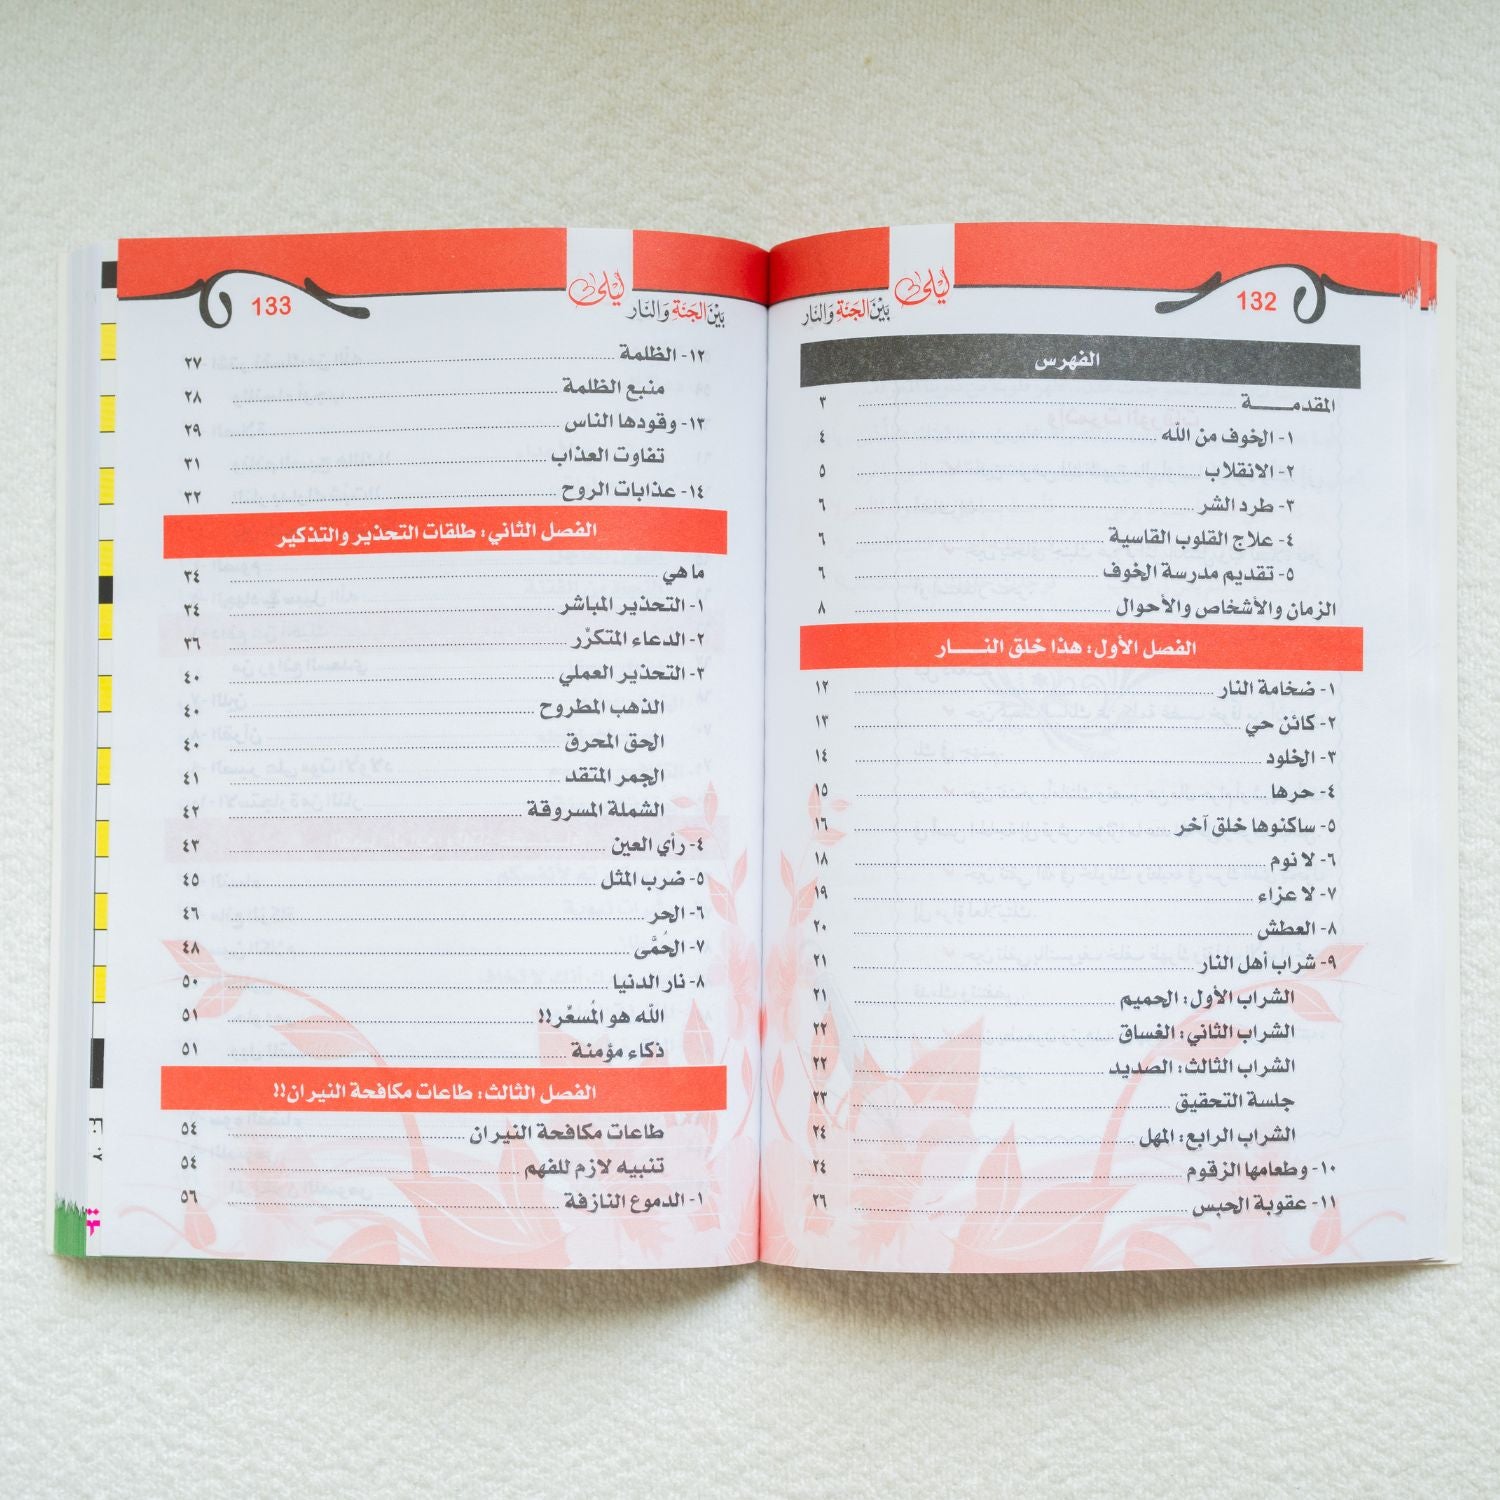 132
ليلى بين الجنة والنار
الفهرس
المقدمـــــة ٣
١- الخوف من الله ٤
٢- الانقلاب ٥
٣- طرد الشر ٦
٤- علاج القلوب القاسية ٦
٥- تقديم مدرسة الخوف ٦
الزمان والأشخاص والأحوال ٨
الفصل الأول: هذا خلق النـــــار
١- ضخامة النار ١٢
٢- كائن حي ١٣
٣- الخلود ١٤
٤- حرها ١٥
٥- ساكنوها خلق آخر ١٦
٦- لا نوم ١٨
٧- لا عزاء ١٩
٨- العطش ٢٠
٩- شراب أهل النار ٢١
الشراب الأول: الحميم ٢١
الشراب الثاني: الغساق ٢٢
الشراب الثالث: الصديد ٢٢
جلسة التحقيق ٢٣
الشراب الرابع: المهل ٢٤
١٠- وطعامها الزقوم ٢٤
١١- عقوبة الحبس ٢٦
133
ليلى بَيْنَ الجَنَّةِ وَالنَّار
١٢- الظلمة ٢٧
منبع الظلمة ٢٨
١٣- وقودها الناس ٢٩
تفاوت العذاب ٣١
١٤- عذابات الروح ٣٢
الفصل الثاني: طلقات التحذير والتذكير
ما هي ٣٤
١- التحذير المباشر ٣٤
٢- الدعاء المتكرِّر ٣٦
٣- التحذير العملي ٤٠
الذهب المطروح ٤٠
الحق المحرق ٤٠
الجمر المتقد ٤١
الشملة المسروقة ٤٢
٤- رأي العين ٤٣
٥- ضرب المثل ٤٥
٦- الحر ٤٦
٧- الحُمَّى ٤٨
٨- نار الدنيا ٥٠
الله هو المُسعِّر!! ٥١
ذكاء مؤمنة ٥١
الفصل الثالث: طاعات مكافحة النيران!!
طاعات مكافحة النيران ٥٤
تنبيه لازم للفهم ٥٤
١- الدموع النازفة ٥٦